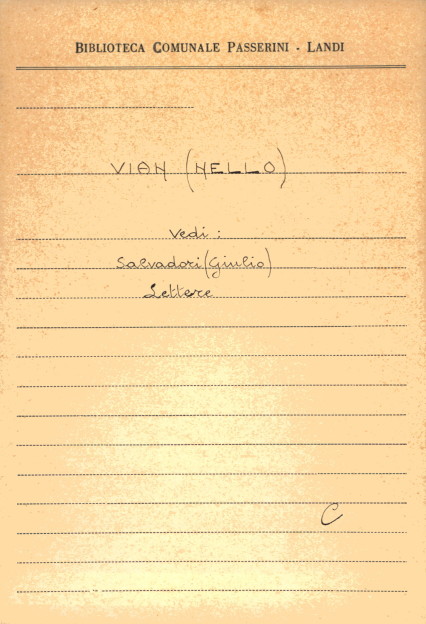 BIBLIOTECA COMUNALE PASSERINI - LANDI
VIAN (NELLO)
Vedi :
Salvadori (Giulio)
Lettere
C